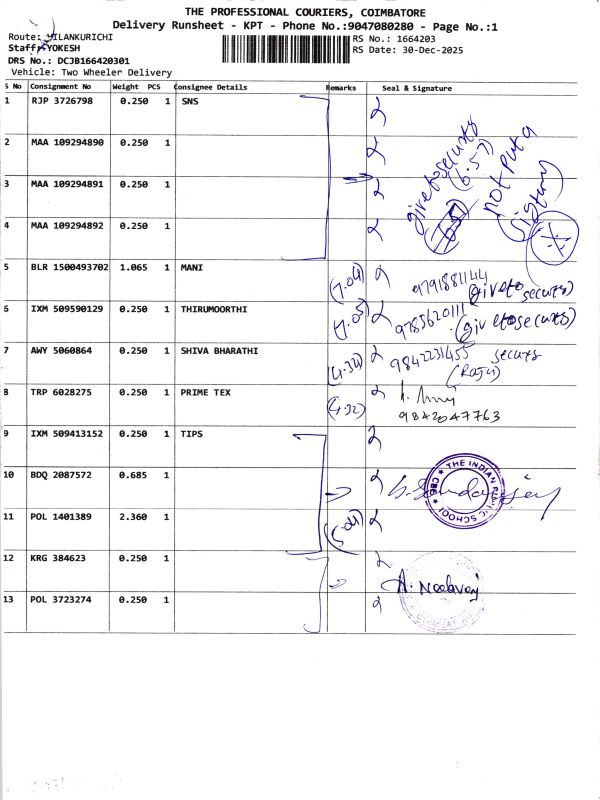 THE PROFESSIONAL COURIERS, COIMBATORE
Delivery Runsheet - KPT - Phone No.:9047080280 - Page No.:1
Route: VILANKURICHI
RS No.: 1664203
Staff: YOKESH
RS Date: 30-Dec-2025
DRS No.: DCJB166420301
Vehicle: Two Wheeler Delivery
S No Consignment No Weight PCS Consignee Details Remarks Seal & Signature
1 RJP 3726798 0.250 1 SNS
2 MAA 109294890 0.250 1
3 MAA 109294891 0.250 1
4 MAA 109294892 0.250 1
give to security
(6.57)
not put a
5 BLR 1500493702 1.065 1 MANI (7.04) 9791881144
(give to security)
6 IXM 509590129 0.250 1 THIRUMOORTHI (7.05) 9785620111
(give to security)
7 AWY 5060864 0.250 1 SHIVA BHARATHI (4.34) 9842231455 security
(Raju)
8 TRP 6028275 0.250 1 PRIME TEX (4.32)
9842047763
9 IXM 509413152 0.250 1 TIPS
10 BDQ 2087572 0.685 1
THE INDIAN PUBLIC SCHOOL
CBE
11 POL 1401389 2.360 1 (5.04)
12 KRG 384623 0.250 1
13 POL 3723274 0.250 1